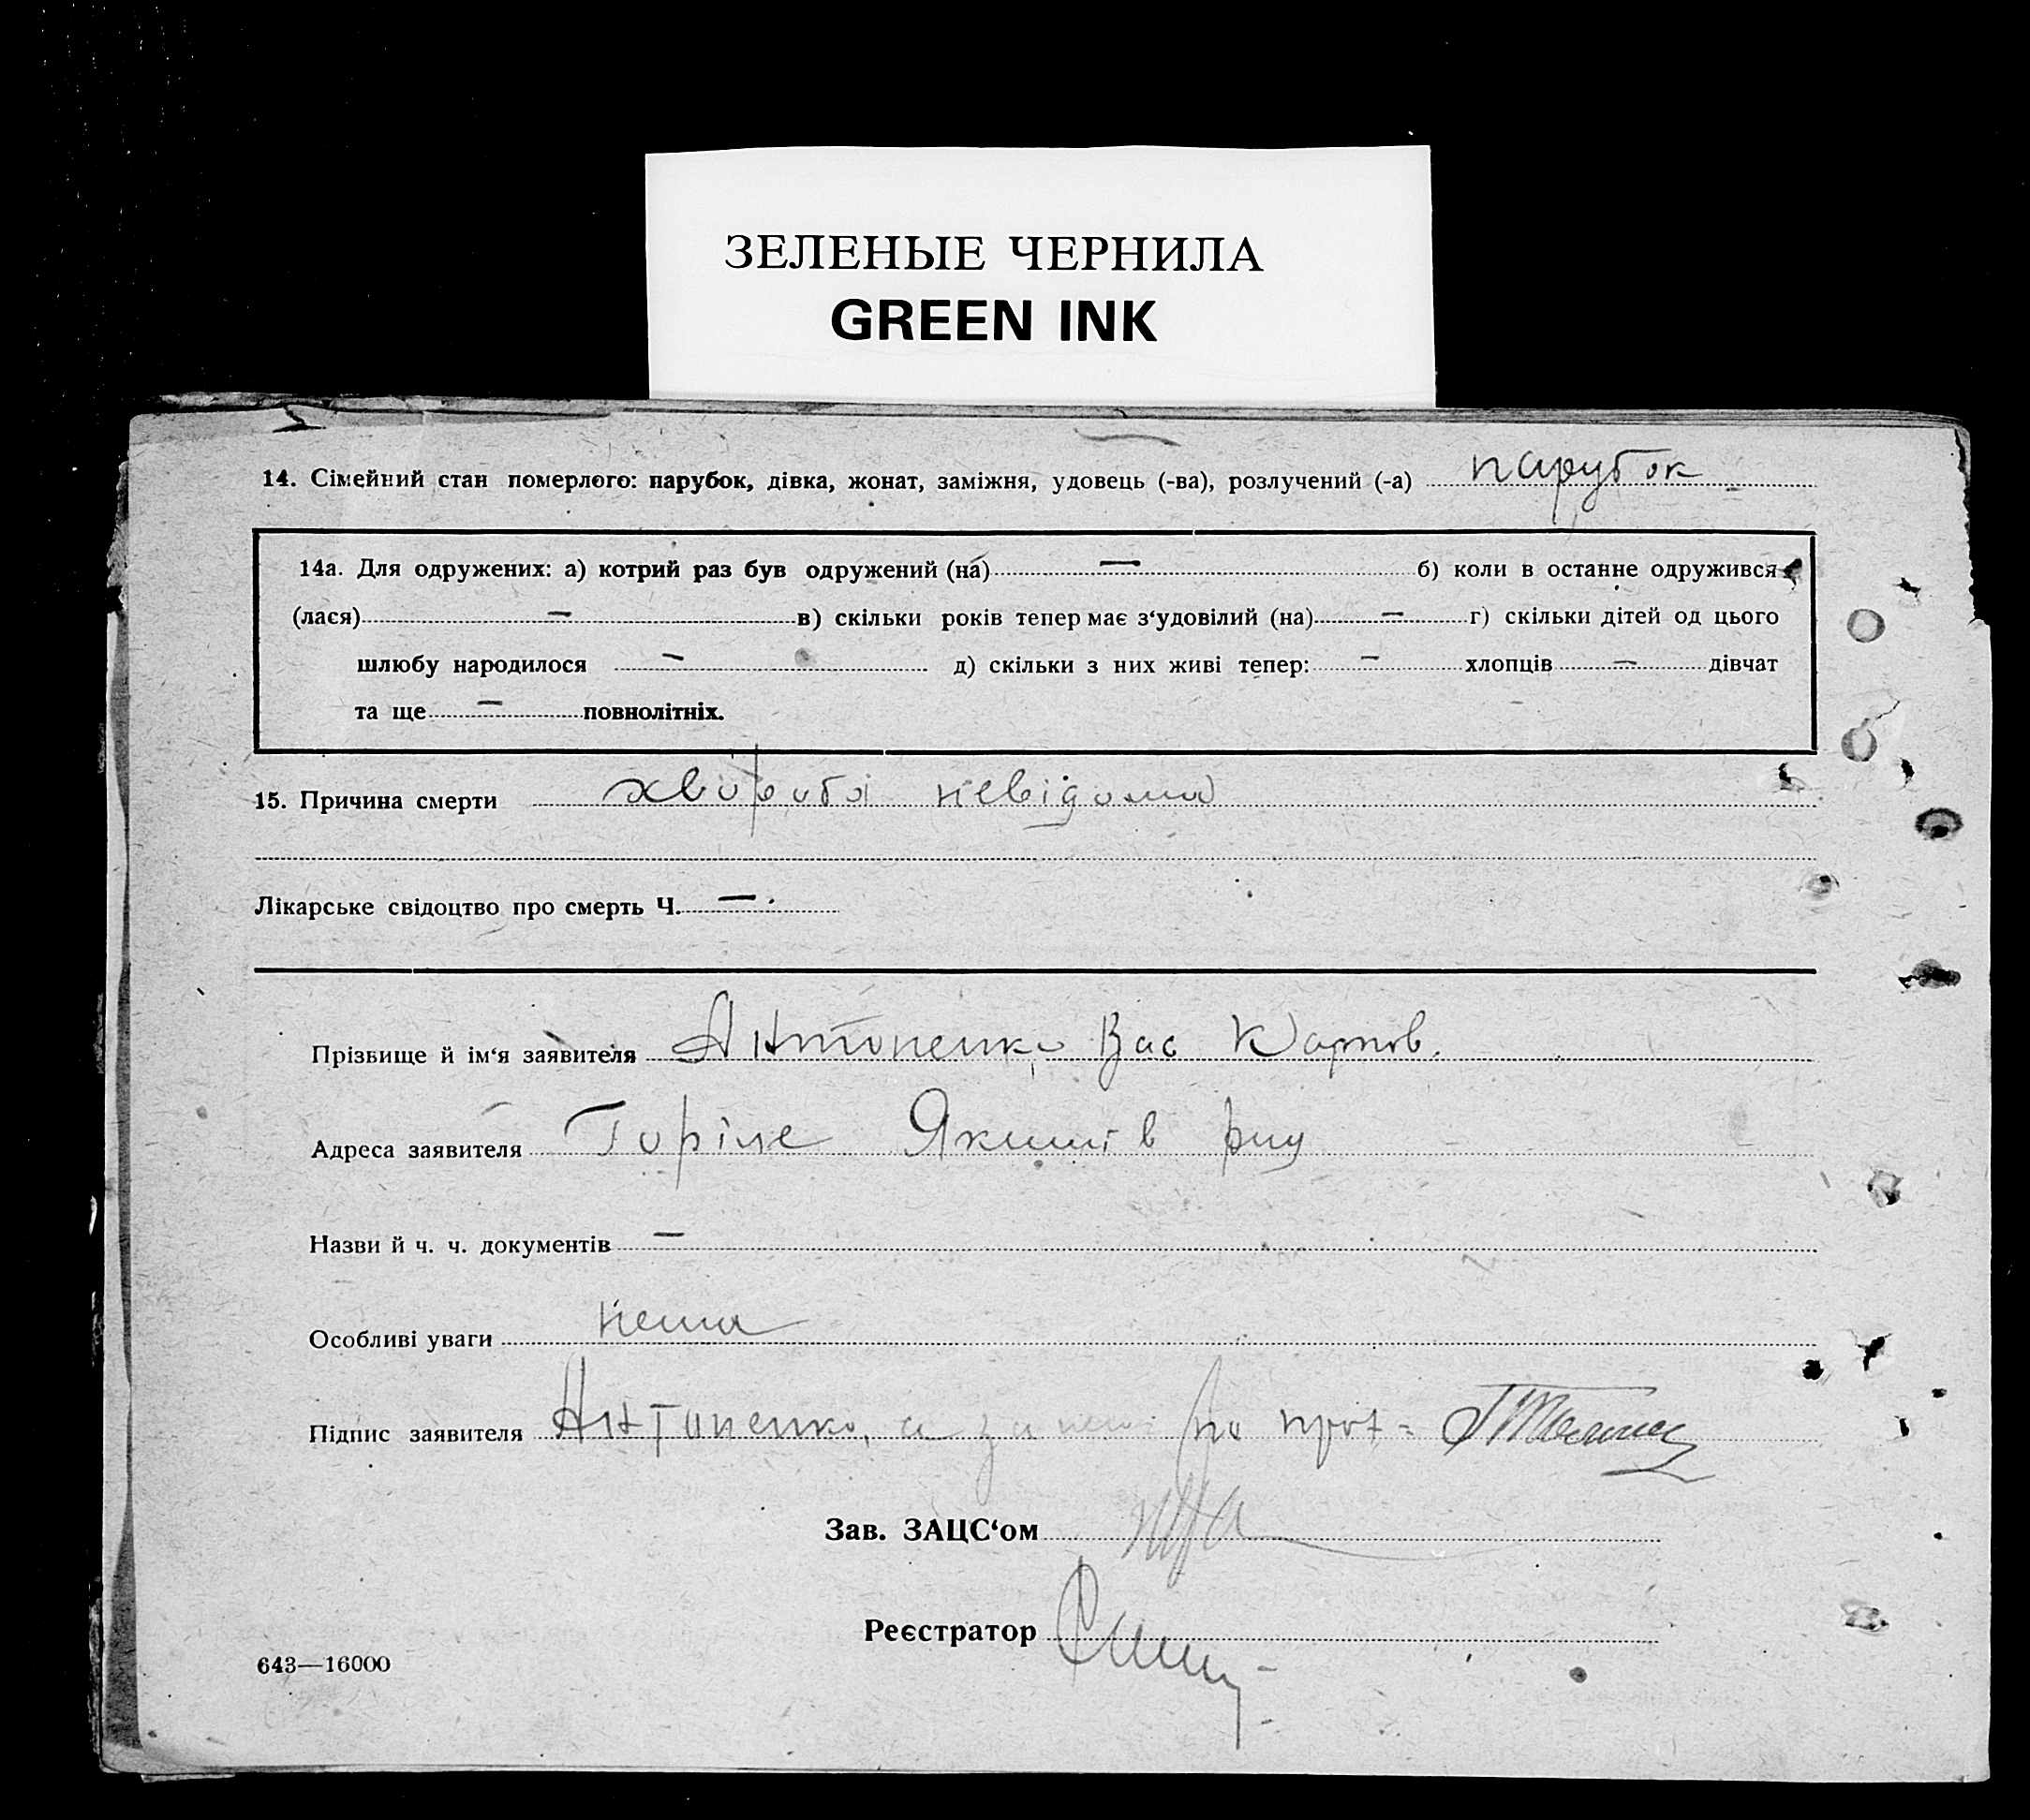 ЗЕЛЕНЫЕ ЧЕРНИЛА
GREEN INK
14. Сімейний стан померлого: парубок, дівка, жонат, заміжня, удовець (-ва), розлучений (-а) парубок
14а. Для одружених: а) котрий раз був одружений (на) — б) коли в останне одружився
(лася) — в) скільки років тепер має з‘удовілий (на) — г) скільки дітей од цього
шлюбу народилося — д) скільки з них живі тепер: — хлопців — дівчат
та ще — повнолітніх.
15. Причина смерти хвороба невідома
Лікарське свідоцтво про смерть Ч. —
Прізвище й ім‘я заявителя Антоненко Вас Карпов.
Адреса заявителя Горіле Якимів рну
Назви й ч. ч. документів —
Особливі уваги нема
Підпис заявителя Антоненко, а за
Зав. ЗАЦС‘ом
Реєстратор
643—16000